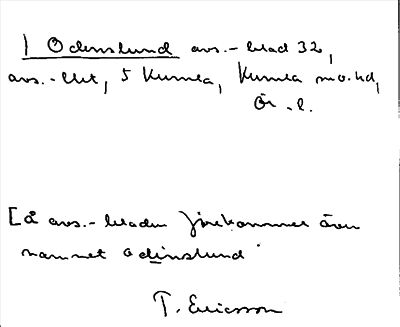 ) Odenslund avs.-blad 32,
avs.-utt, S Kumla, Kumla sn o. hd,
Ör. l.
[å avs.-bladen förekommer även
namnet Odinslund
T. Ericsson